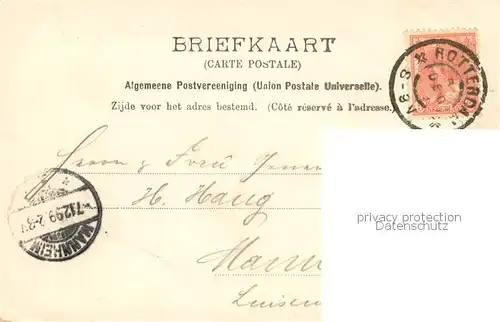 BRIEFKAART
(CARTE POSTALE)
Algemeene Postvereeniging (Union Postale Universelle).
Zijde voor het adres bestemd. (Côté réservé à l'adresse.)
ROTTERDA
8-8
Herrn & Frau
H. Haug
Mann
Luisen
MANNHEIM
7.12.99
privacy protection
Datenschutz